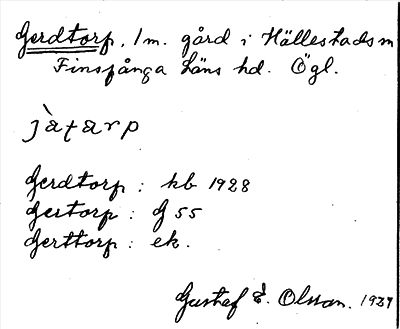 Gerdtorp, 1 m. gård i Hällestads sn
Finspånga läns hd. Ögl.
jàtarp
Gerdtorp: kb 1928
Gertorp: G 55
Gerttorp: ek.
Gustaf E. Olsson. 1927